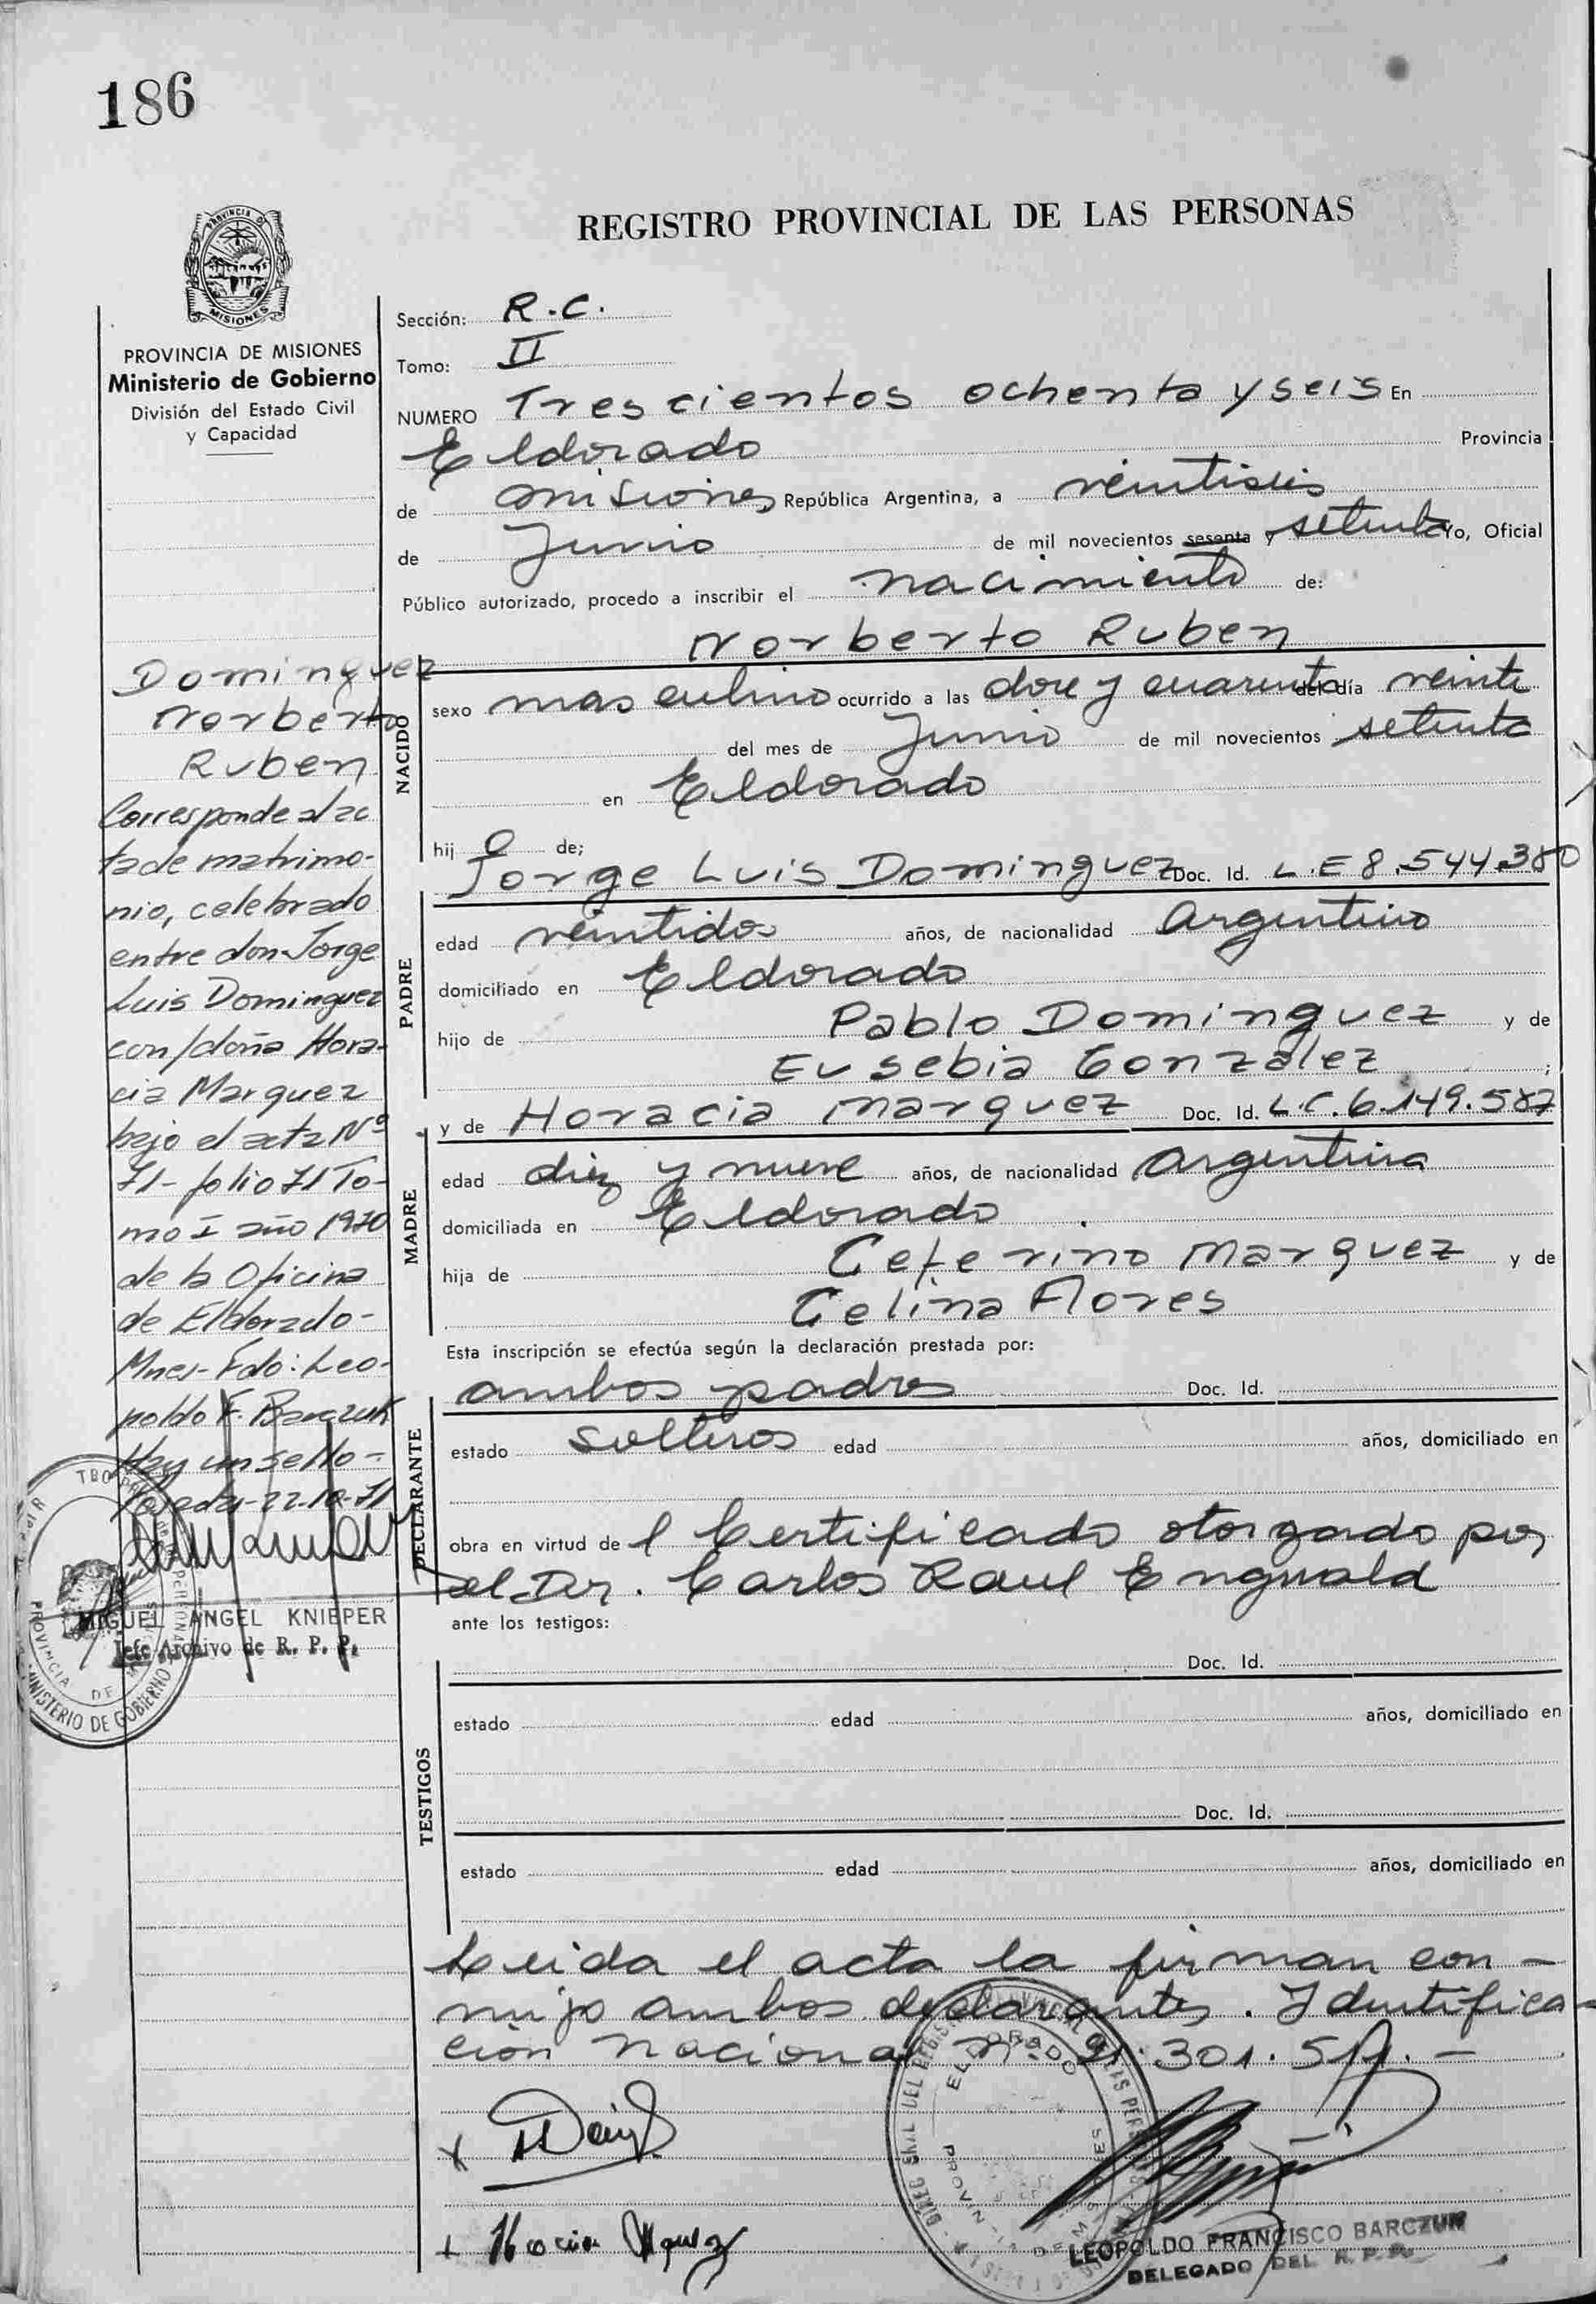 186
REGISTRO PROVINCIAL DE LAS PERSONAS
PROVINCIA DE MISIONES
Ministerio de Gobierno
División del Estado Civil
y Capacidad
Sección: R.C.
Tomo: II
NUMERO Trescientos ochenta y seis En
Eldorado Provincia
de Misiones República Argentina, a veintiseis
de Junio de mil novecientos sesenta y setenta Yo, Oficial
Público autorizado, procedo a inscribir el nacimiento de:
Norberto Ruben
NACIDO
sexo masculino ocurrido a las doce y cuarenta del día veinte
del mes de Junio de mil novecientos setenta
en Eldorado
hij o de;
Jorge Luis Dominguez Doc. Id. L.E 8.544.380
PADRE
edad veintidos años, de nacionalidad Argentino
domiciliado en Eldorado
hijo de Pablo Dominguez y de
Eusebia Gonzalez ;
y de Horacia Marquez Doc. Id. L.C. 6.149.587
MADRE
edad diez y nueve años, de nacionalidad Argentina
domiciliada en Eldorado
hija de Ceferino Marquez y de
Celina Flores
Esta inscripción se efectúa según la declaración prestada por:
ambos padres Doc. Id.
DECLARANTE
estado solteros edad años, domiciliado en
obra en virtud de l Certificado otorgado por
el Dr. Carlos Raul Enguald
ante los testigos:
Doc. Id.
TESTIGOS
estado edad años, domiciliado en
Doc. Id.
estado edad años, domiciliado en
Leida el acta la firman con-
migo ambos declarantes. Identifica-
ción Nacional Nº 21.301.5
LEOPOLDO FRANCISCO BARCZUK
DELEGADO DEL R. P. P.
Dominguez
Norberto
Ruben
Corresponde al ac
ta de matrimo-
nio, celebrado
entre don Jorge
Luis Dominguez
con/doña Hora-
cia Marquez
bajo el acta Nº
71- folio 71 To-
mo I año 1970
de la Oficina
de Eldorado-
Mnes- Fdo: Leo-
poldo F. Barczuk
Hay un sello-
22-10-71
MIGUEL ANGEL KNIEPER
Jefe Archivo de R. P. P.
MINISTERIO DE GOBIERNO
PROVINCIA DE MISIONES
ELDORADO